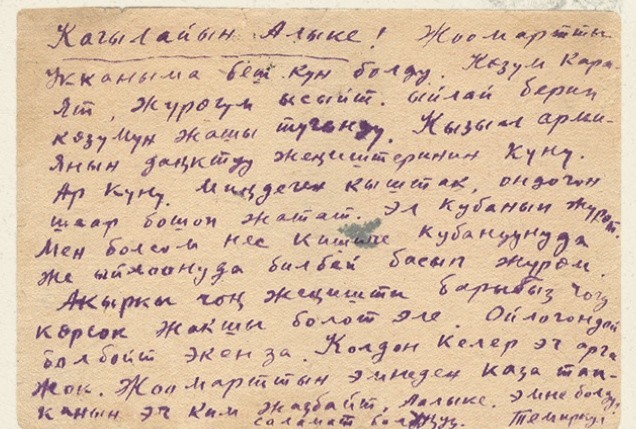 Кагылайын Алыке! Жоомартты
Укканыма беш күн болду. Көзүм Кара-
ят, жүрөгүм ысыйт. ыйлай берип
көзүмүн жашы түгөндү. Кызыл арми-
янын даңктуу жеңиштеринин күнү.
Ар күнү миңдеген кыштак, ондогон
шаар бошоп жатат. Эл кубанып жүрөт
Мен болсом нес кишиче кубануунуда
же ыйлоонуда билбай басып жүрөм.
Акыркы чоң жеңишти барыбыз чогу
көрсөк жакшы болот эле. Ойлогондой
болбойт экен за. Колдон келер эч арга
жок. Жоомарттын эмнеден каза тап-
канын эч ким жазбайт, Аалыке. эмне болду,
саламат болуңуз. Темиркул